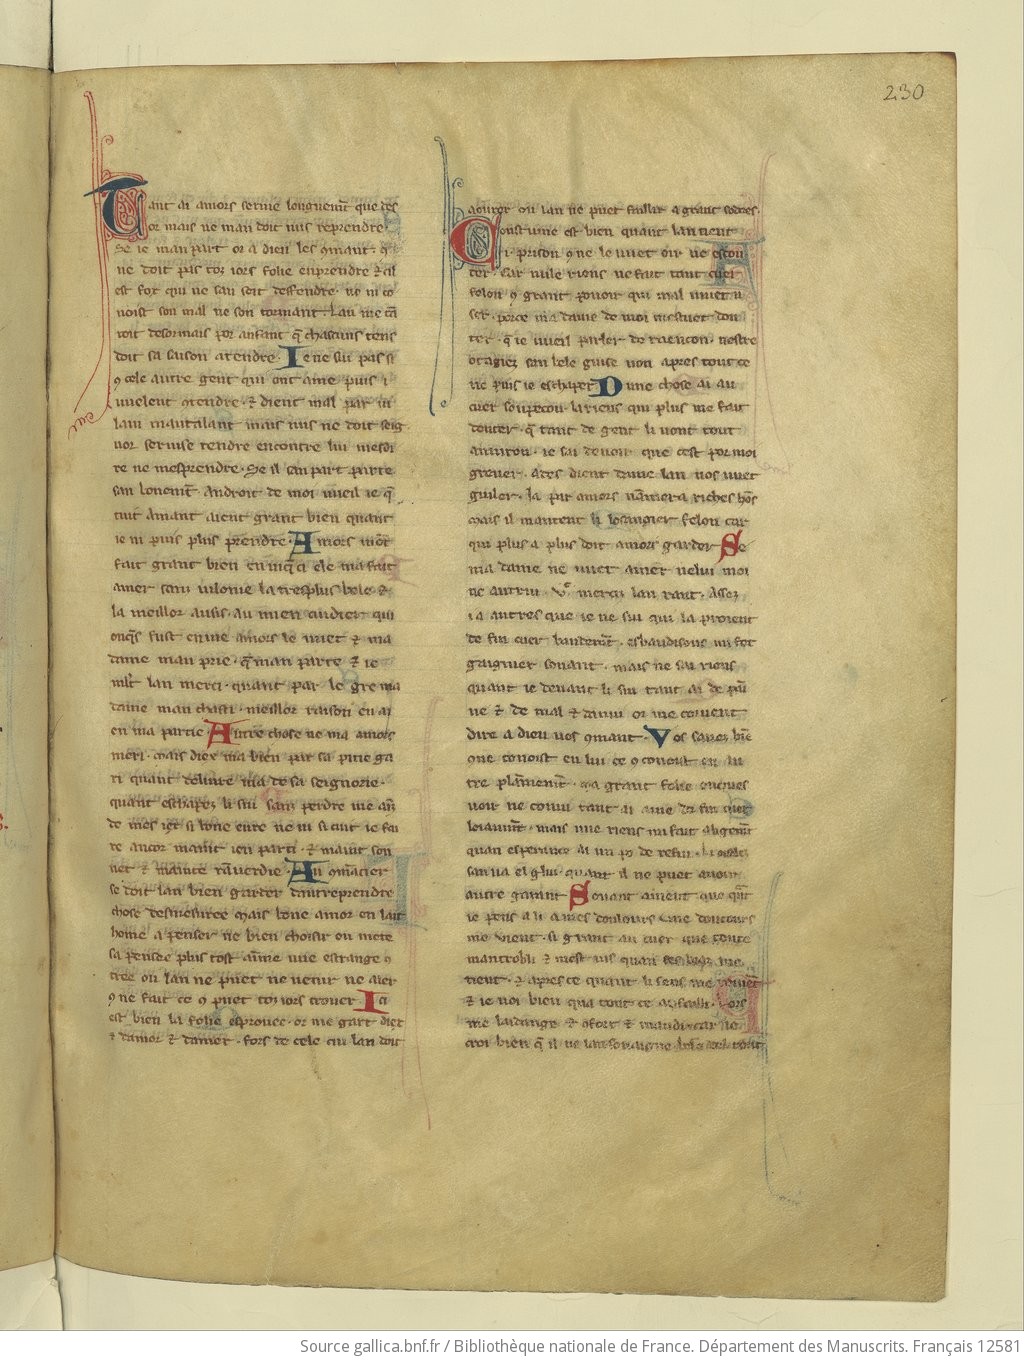 230
Tant ai amors servie longuemt que des
or mais ne man doit nus reprendre.
Se ie man part or a dieu les qmant. q
ne doit pas toz iors folie enprendre ⁊ cil
est fox qui ne san seit deffendre. ne ni co
noist son mal ne son tormant. lan me tāt
toit desormais por anfant q̄ chascuns tens
doit sa saison atendre. Je ne sui pas si
9 cele autre gent qui ont ame puis i
vuelent 9tendre. ⁊ dient mal par vi
lain mautalant mais nus ne doit seig
nor servise rendre encontre lui mesdi
re ne mesprendre. Se il san part parte
san bonemt. Androit de moi vueil ie q̄
tuit amant aient grant bien quant
ie ni puis plus prendre. Amors mot
fait grant bien enusq̄ ci ele ma fait
amer sanz vilonie la tresplus bele ⁊
la meillor ausis au mien cuidier qui
onq̄s fust en vie amors le vuet ⁊ ma
dame man prie. q̄ man parte ⁊ ie
mlt lan merci. quant par le gre ma
dame man chasti. meillor raison en ai
en ma partie. Autre chose ne ma amors
meri. mais diex ma bien par sa pitie ga
ri quant delivre ma de sa seignorie.
quant eschapez li sui sanz perdre vie ainz
de mes iex si bone eure ne vi si cuit ie fai
re ancor maint ieu parti. ⁊ maint son
net ⁊ mainte ranverdie. Au comācier
se doit lan bien garder dantreprendre
chose desmesuree mais bone amor en lait
home a penser ne bien choisir ou mete
sa pensee plus tost aime une estrange 9
tree ou lan ne puet ne venir ne aler
9 ne fait ce 9 puet toz iors trover. Ici
est bien la folie esprovee. or me gart diex
⁊ damor ⁊ damer. fors de cele cui lan doit
aourer ou lan ne puet faillir a grant soudees.
Coustume est bien quant lan tient
i. prison 9 ne le vuet oir ne escou
ter. Car nule riens ne fait tant cuer
felon 9 grant pooir qui mal vuet u
ser. porce ma dame de moi mestuet dou
ter. q̄ ie vueil parler de raencon. nestre
otagiez san bele guise non apres tout ce
ne puis ie eschaper. Dune chose ai au
cuer soupecon la riens qui plus me fait
douter. q̄ tant de gent li vont tout
anviron. ie sai de voir que cest por moi
grever. Ades dient dame lan vos vuet
guiler. ia par amors namera riches hōs
mais il mantent li losangier felon car
qui plus a plus doit amors garder Se
ma dame ne vuet amer nelui moi
ne autrui. v.c. merciz lan rant. Assez
i a autres que ie ne sui qui la proient
de fin cuer baudemt. esbaudisons mi fet
gaignier sovant. mais ne sai riens
quant ie devant li sui tant ai de pai
ne ⁊ de mal ⁊ danui or me covient
dire a dieu vos qmant. Vos savez biē
que conoist en lui ce 9 conoist en au
tre plainemt. ma grant folie onques
voir ne conui tant ai ame de fin cuer
loiaumt. mais une riens mi fait
quan esperance ai un po de refui.
san va el glui quant il ne puet avoir
autre garant. Sovant avient que quāt
ie pens a li cunes doulours une doucors
me vient. si grant au cuer que toute
mantrobli
tient. ⁊ apres ce quant li sens me
⁊ ie voi bien qua tout ce
me laidange ⁊ ⁊ maudi. car
croi bien q̄ il ne